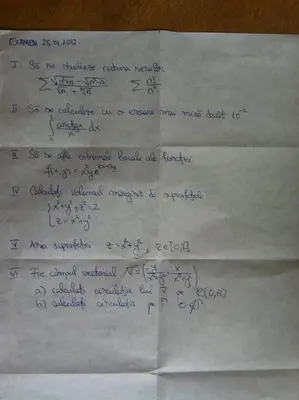 EXAMEN 25.01.2012.
I Să se studieze natura seriilor
∑ (√(n²+n) − √(n²−n)) / (√n + ∜n) ∑ n! / nⁿ
II Să se calculeze cu o eroare mai mică decât 10⁻²
∫ arctgx / x dx
III Să se afle extremele locale ale funcției
f(x,y) = x²y e^(2x+3y)
IV Calculați volumul mărginit de suprafețele
{ x²+y²+z²=2
z = x²+y²
V Aria suprafeței z = x²+y², z∈[0,1]
VI Fie câmpul vectorial V̄ =
a) calculați circulația lui v̄ pe C(0,R)
b) calculați circulația pe Γ 0∉Γ